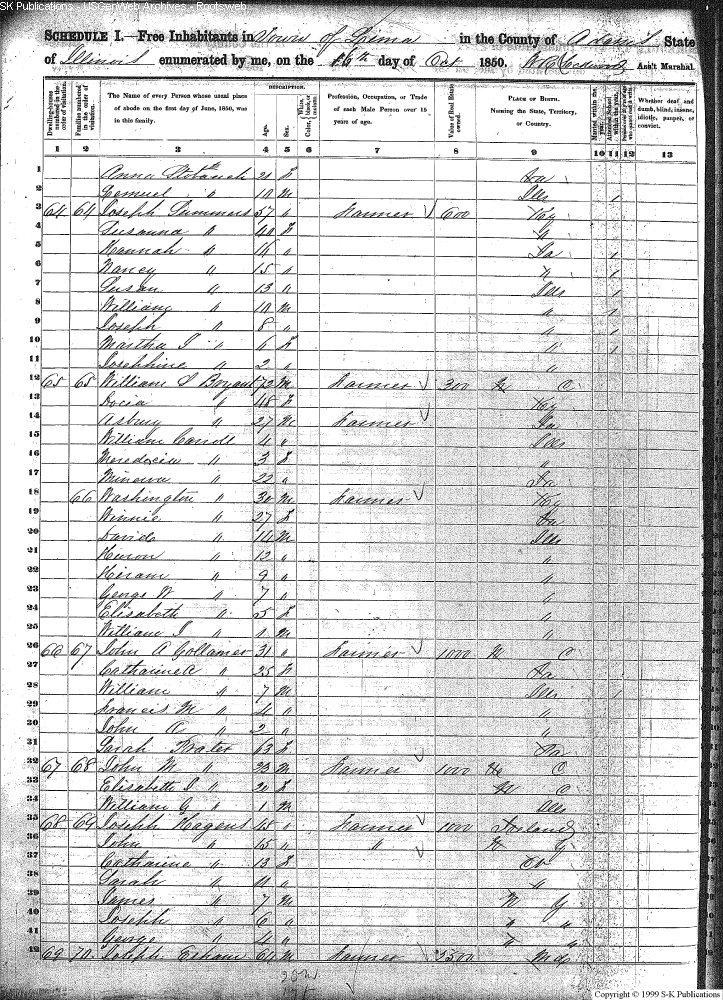 SK Publications - USGenWeb Archives - Rootsweb
SCHEDULE I.—Free Inhabitants in Town of Lima in the County of Adams State
of Illinois enumerated by me, on the 16th day of Oct 1850. Ass't Marshal.
Dwelling-houses numbered in the order of visitation.
Families numbered in the order of visitation.
The Name of every Person whose usual place of abode on the first day of June, 1850, was in this family.
DESCRIPTION.
Age.
Sex.
Color,
Profession, Occupation, or Trade of each Male Person over 15 years of age.
Value of Real Estate owned.
PLACE OF BIRTH.
Naming the State, Territory, or Country.
Married within the year.
Whether deaf and dumb, blind, insane, idiotic, pauper, or convict.
1 2 3 4 5 6 7 8 9 10 11 12 13
1 Anna 21 F
2 Lemuel " 10 M Ills /
3 64 64 Joseph Summers 57 " Farmer 600 Ky
4 Susanna " 40 F "
5 Hannah " 16 " Ia /
6 Nancy " 15 " " /
7 Susan " 13 " Ills /
8 William " 10 M " /
9 Joseph " 8 " " /
10 Martha J " 6 F " /
11 Josephine " 2 " "
12 65 65 William S Bryant 72 M Farmer 300 N C
13 Docia " 48 F Ky
14 Asbury " 27 M Farmer Ia
15 William 4 " Ills
16 " 3 F "
17 Minerva " 22 " Ia
18 66 Washington " 30 M Farmer Ky
19 Winnie " 27 F Ia
20 David " 14 M Ills
21 Huron " 12 " "
22 Hiram " 9 " "
23 George W " 7 " "
24 Elisabeth " 5 F "
25 William J " 1 M "
26 66 67 John A Gollamer 31 " Farmer 1000 N C
27 Catharine A " 25 F Ia
28 William " 7 M Ills /
29 Francis M " 4 " "
30 John A " 2 " "
31 Sarah 63 F
32 67 68 John M " 23 M Farmer 1000 C
33 Elisabeth J " 20 F N C
34 William G " 1 M Ills
35 68 69 Joseph Hagens 45 " Farmer 1000
36 John " 15 " " N Y
37 Catharine " 13 F
38 Sarah " "
39 James " 7 M N Y
40 Joseph " 6 " " "
41 George " 4 " " "
42 69 70 Joseph 64 M Farmer 2500 Md
Copyright © 1999 S-K Publications